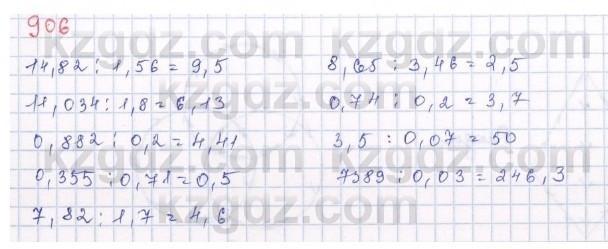 906
kzgdz.com kzgdz.com
14,82 : 1,56 = 9,5
8,65 : 3,46 = 2,5
11,034 : 1,8 = 6,13
0,74 : 0,2 = 3,7
0,882 : 0,2 = 4,41
3,5 : 0,07 = 50
0,355 : 0,71 = 0,5
7389 : 0,03 = 246,3
7,82 : 1,7 = 4,6